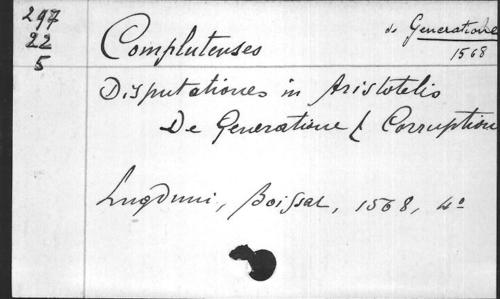 297
22
5
de Generatione
1568
Complutenses
Disputationes in Aristotelis
De Generatione & Corruptione
Lugduni, Boissat, 1568, 4º